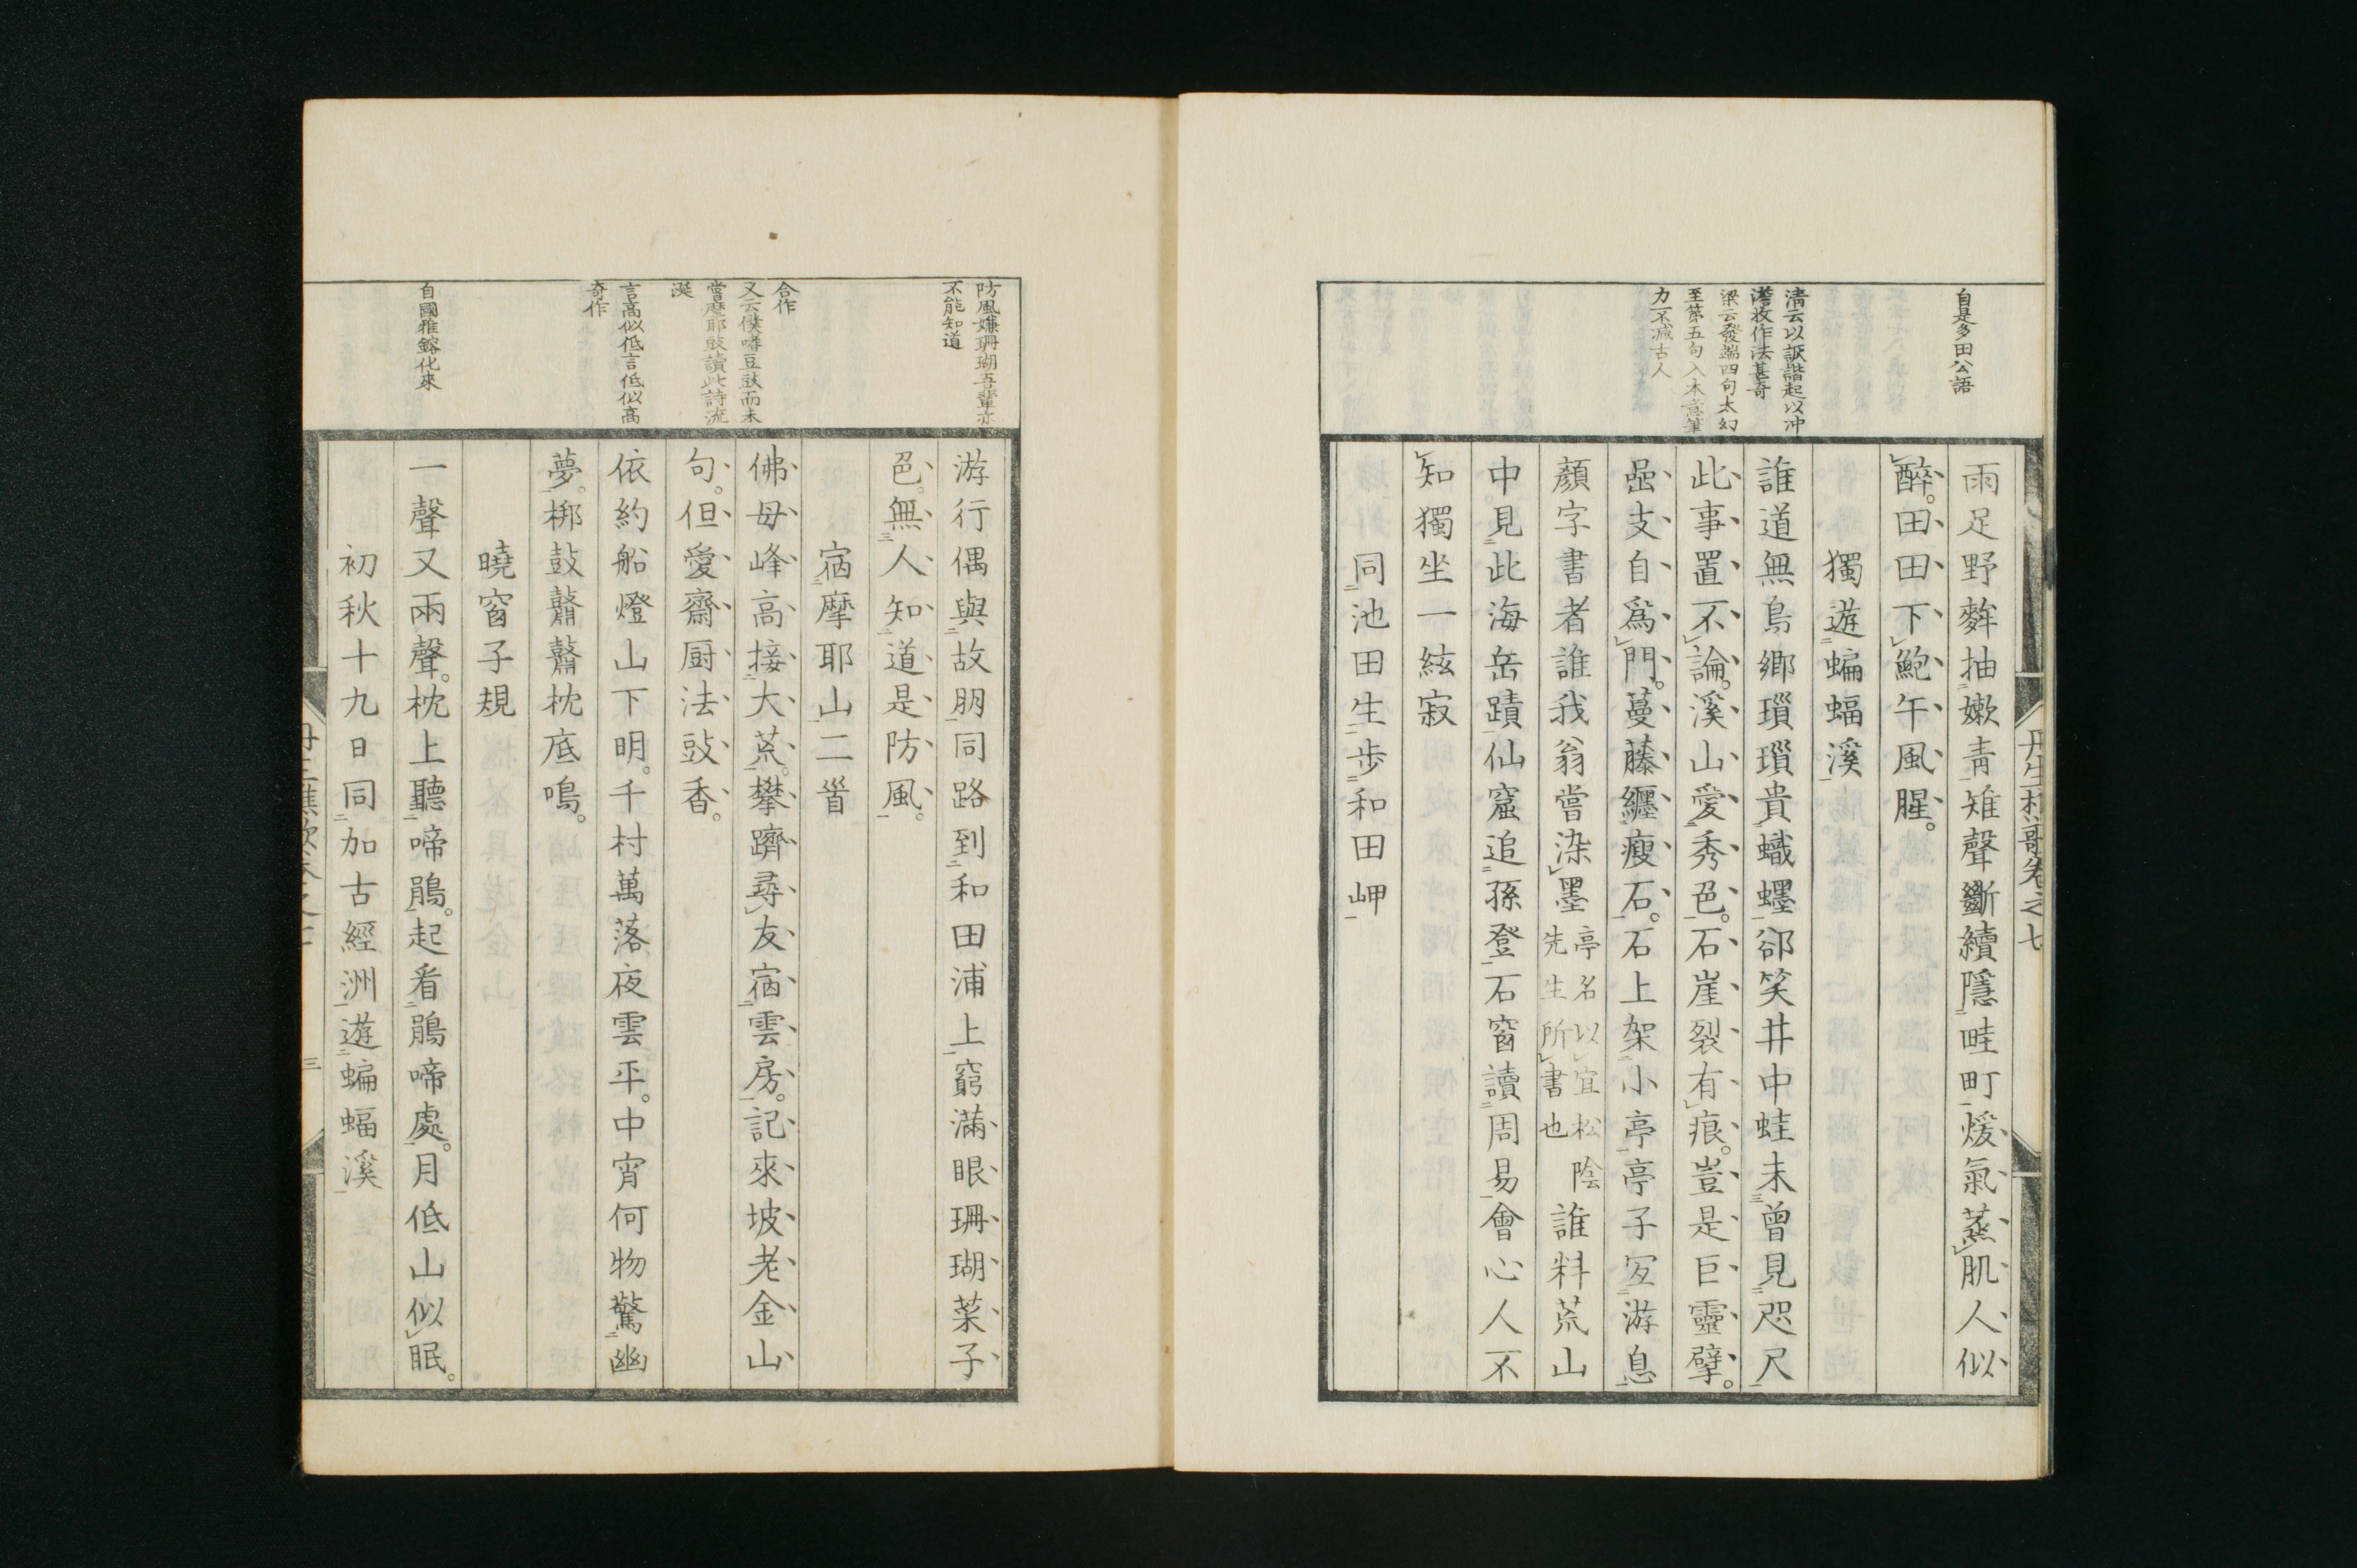 自是多田公語
清云以詼諧起以冲
澹收作法甚奇
梁云發端四句太幻
至第五句入本意筆
力不減古人
雨足野麰抽嫰青雉聲斷續隱畦町煖氣蒸肌人似
醉。田田下鮑午風腥。
獨遊蝙蝠溪
誰道無鳥鄉瑣瑣貴蠛蠓郤笑井中蛙未曾見咫尺
此事置不論。溪山愛秀色。石崖裂有痕。豈是巨靈擘。
嵒支自爲門。蔓藤纒瘦石。石上架小亭亭子宜游息
顏字書者誰我翁嘗染墨亭名以宜松陰
先生所書也誰料荒山
中見此海岳蹟仙窟追孫登石窗讀周易會心人不
知獨坐一絃寂
同池田生步和田岬
丹生樵歌卷之七
防風嫌珊瑚吾輩亦
不能知道
合作
又云僕嗜豆豉而未
嘗摩耶豉讀此詩流
涎
言高似低言低似高
奇作
自國雅鎔化來
游行偶與故朋同路到和田浦上窮滿眼珊瑚菜子
邑。無人知道是防風。
宿摩耶山二首
佛母峰高接大荒。攀躋尋友宿雲房。記來坡老金山
句。但愛齋厨法豉香。
依約船燈山下明。千村萬落夜雲平。中宵何物驚幽
夢。梆鼓鼛鼛枕底鳴。
曉窗子規
一聲又兩聲。枕上聽啼鵑。起看鵑啼處。月低山似眠。
初秋十九日同加古經洲遊蝙蝠溪
三